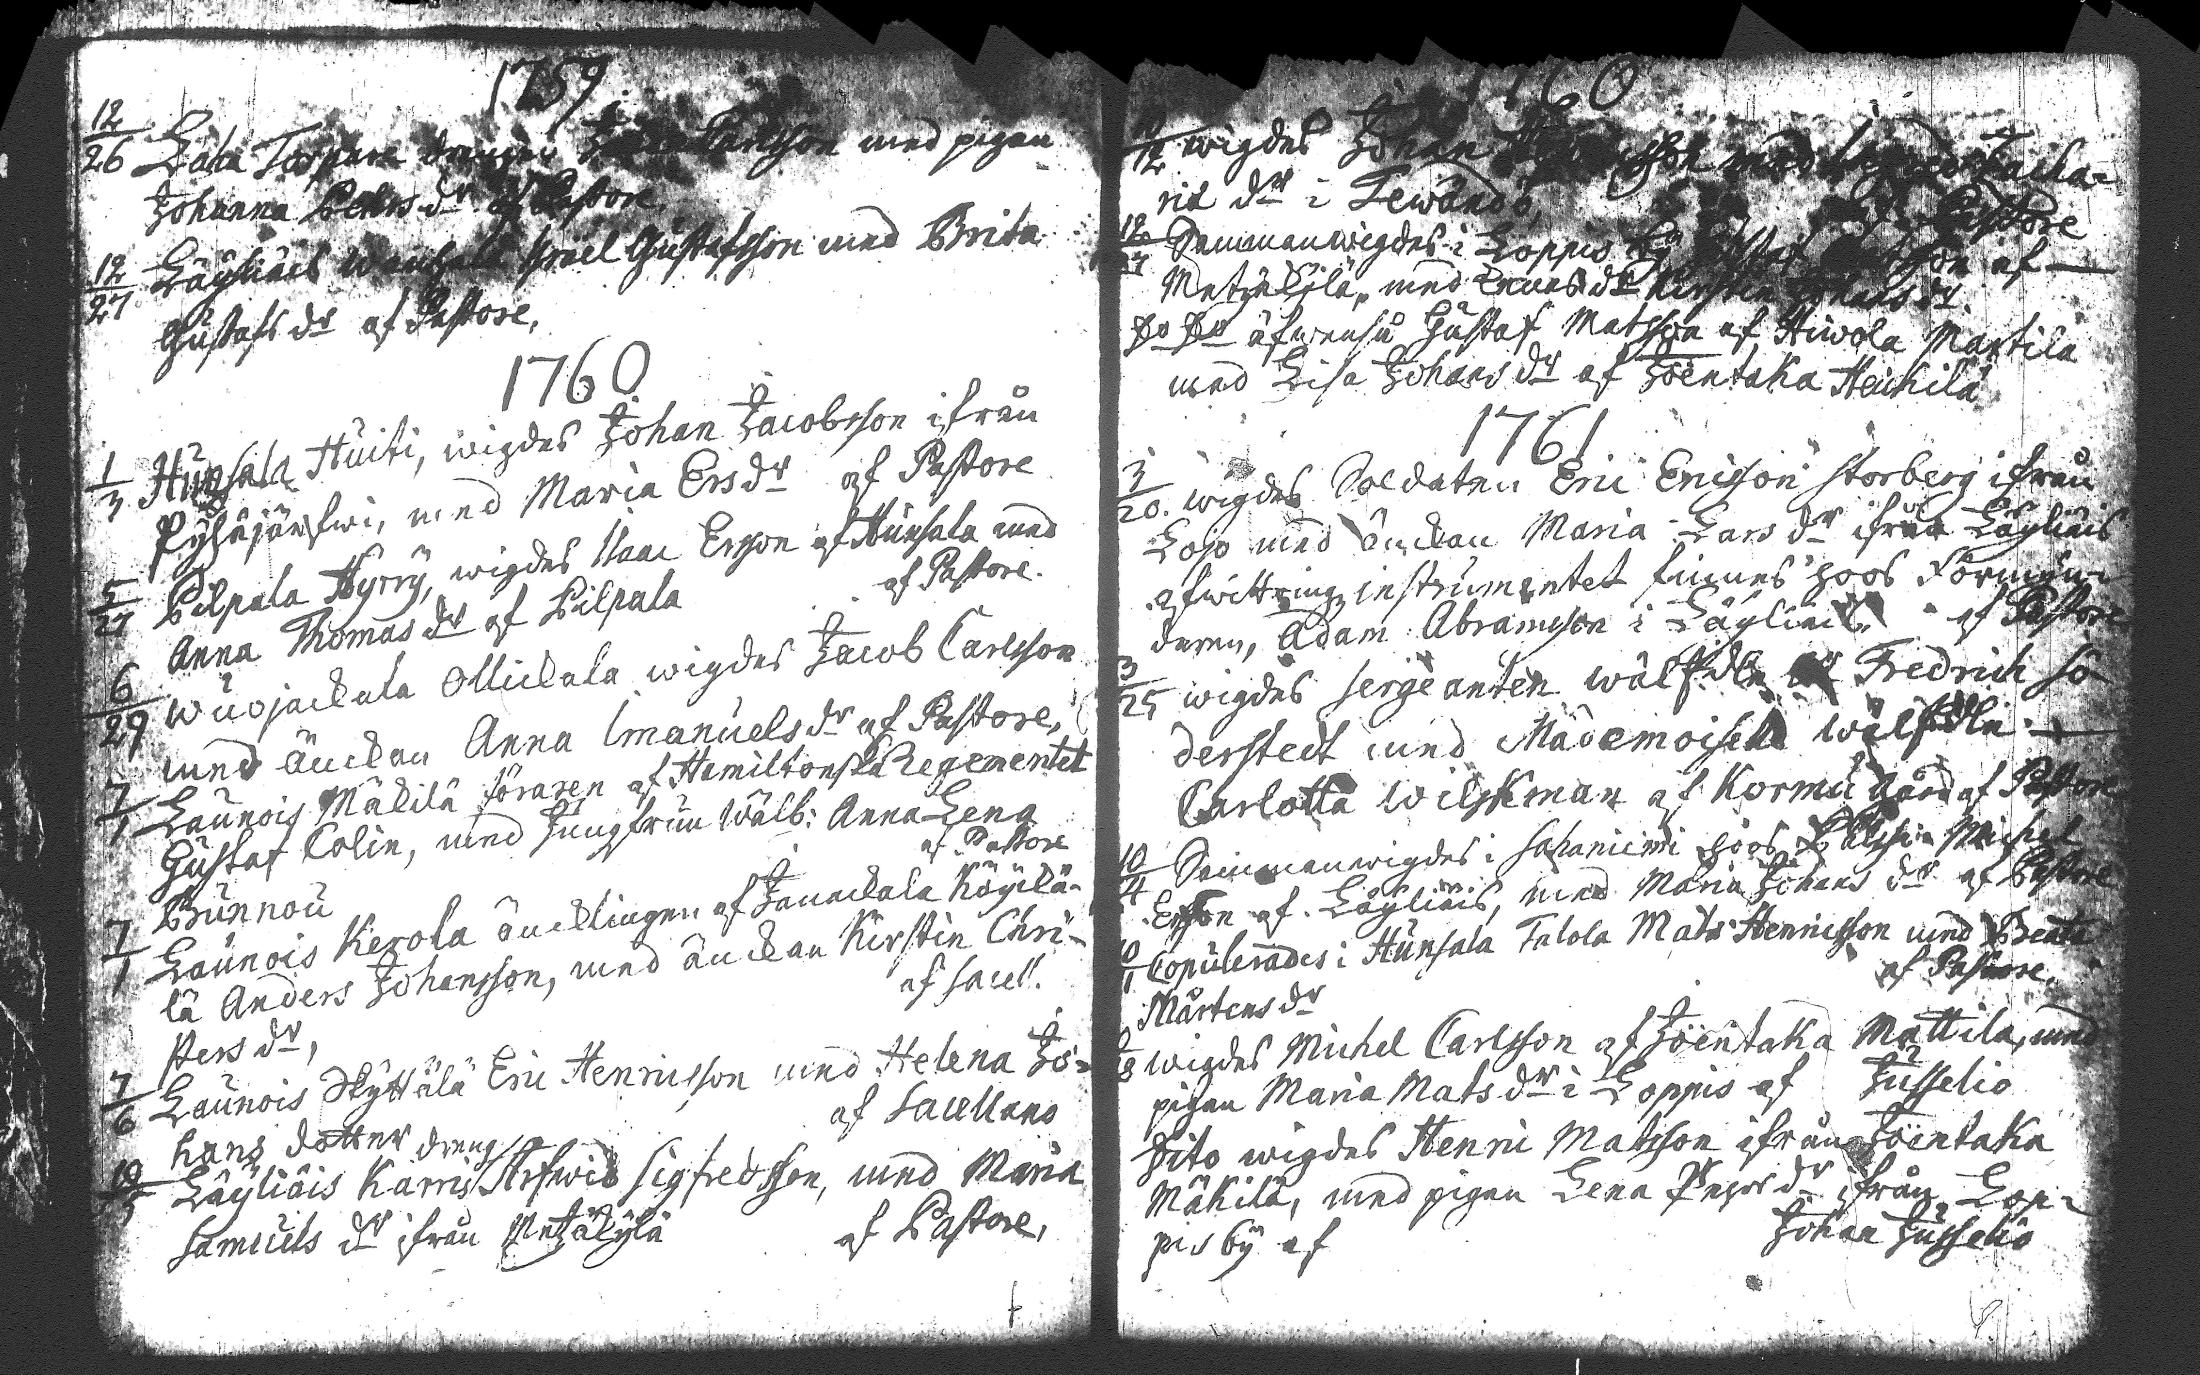 1759
12/26 Torpare drengen Carlsson med pigan
Johanna Pehrs dr af Pastore.
12/27 Läyliäis Israel Gustafsson med Brita
Gustafs dr af Pastore,
1760
1/3 Hunsala Huiti, wigdes Johan Jacobsson ifrån
Pyhäjärfwi, med Maria Ers dr af Pastore
5/27 Pilpala Hyrry, wigdes Isaac Ersson af Hunsala med
Anna Thomas dr af Pilpala af Pastore.
6/29 Wuojackala Ollickala wigdes Jacob Carlsson
med änckan Anna Imanuels dr af Pastore,
7/1 Launois Mäkilä föraren af Hamiltonska Regementet
Gustaf Colin, med Jungfrun Wälb: Anna Lena
Brunnou af Pastore
7/1 Launois Kerola äncklingen af Janackala Köyckä-
lä Anders Johansson, med änckan Kirstin Chri-
sters dr, af Sacell.
7/6 Launois Skyttälä Eric Henricsson med Helena Jo-
hans dotter af Sacellano
10/5 Läyliäis Karris dreng Arfwid Sigfredsson, med Maria
Samuels dr ifrån Metzäkylä af Pastore,
1760
wigdes Johan med
ris dr i Tewändö, Pastore
12/27 Sammanwigdes i Loppis by Gustaf af
Metzäkylä, med Enckas dr Kirstin Johans dr
Do Do äfwenså Gustaf Matsson af Hiwola Martila
med Lisa Johans dr af Joentaka Heickilä
1761
1/20. wigdes Soldaten Eric Ericsson Storberg ifrån
Lojo med änckan Maria Lars dr ifrån Läyliäis
afwittrings instrumentet finnes hoos Förmyn-
daren, Adam Abramsson i Läyliäis. af Pastore
3/25 wigdes Sergeanten wälf Fredrich Sö-
derstedt med Mademoiselle wälf
Carlotta Wilskman af Kormu gård af Pastore
10/4 Sammanwigdes i Sahaniemi hoos Michel
Ersson af Läyliäis, med Maria Johans dr af Pastore
Copulerades i Hunsala Talola Mats Henricsson med Beata
Mårtens dr af Pastore,
wigdes Michel Carlsson af Joentaka Mattila, med
pigan Maria Mats dr i Loppis af Jusselio
Dito wigdes Henric Matsson ifrån Joentaka
Mäkilä, med pigan Lena dr ifrån Lop-
pis by af Johan Jusselio